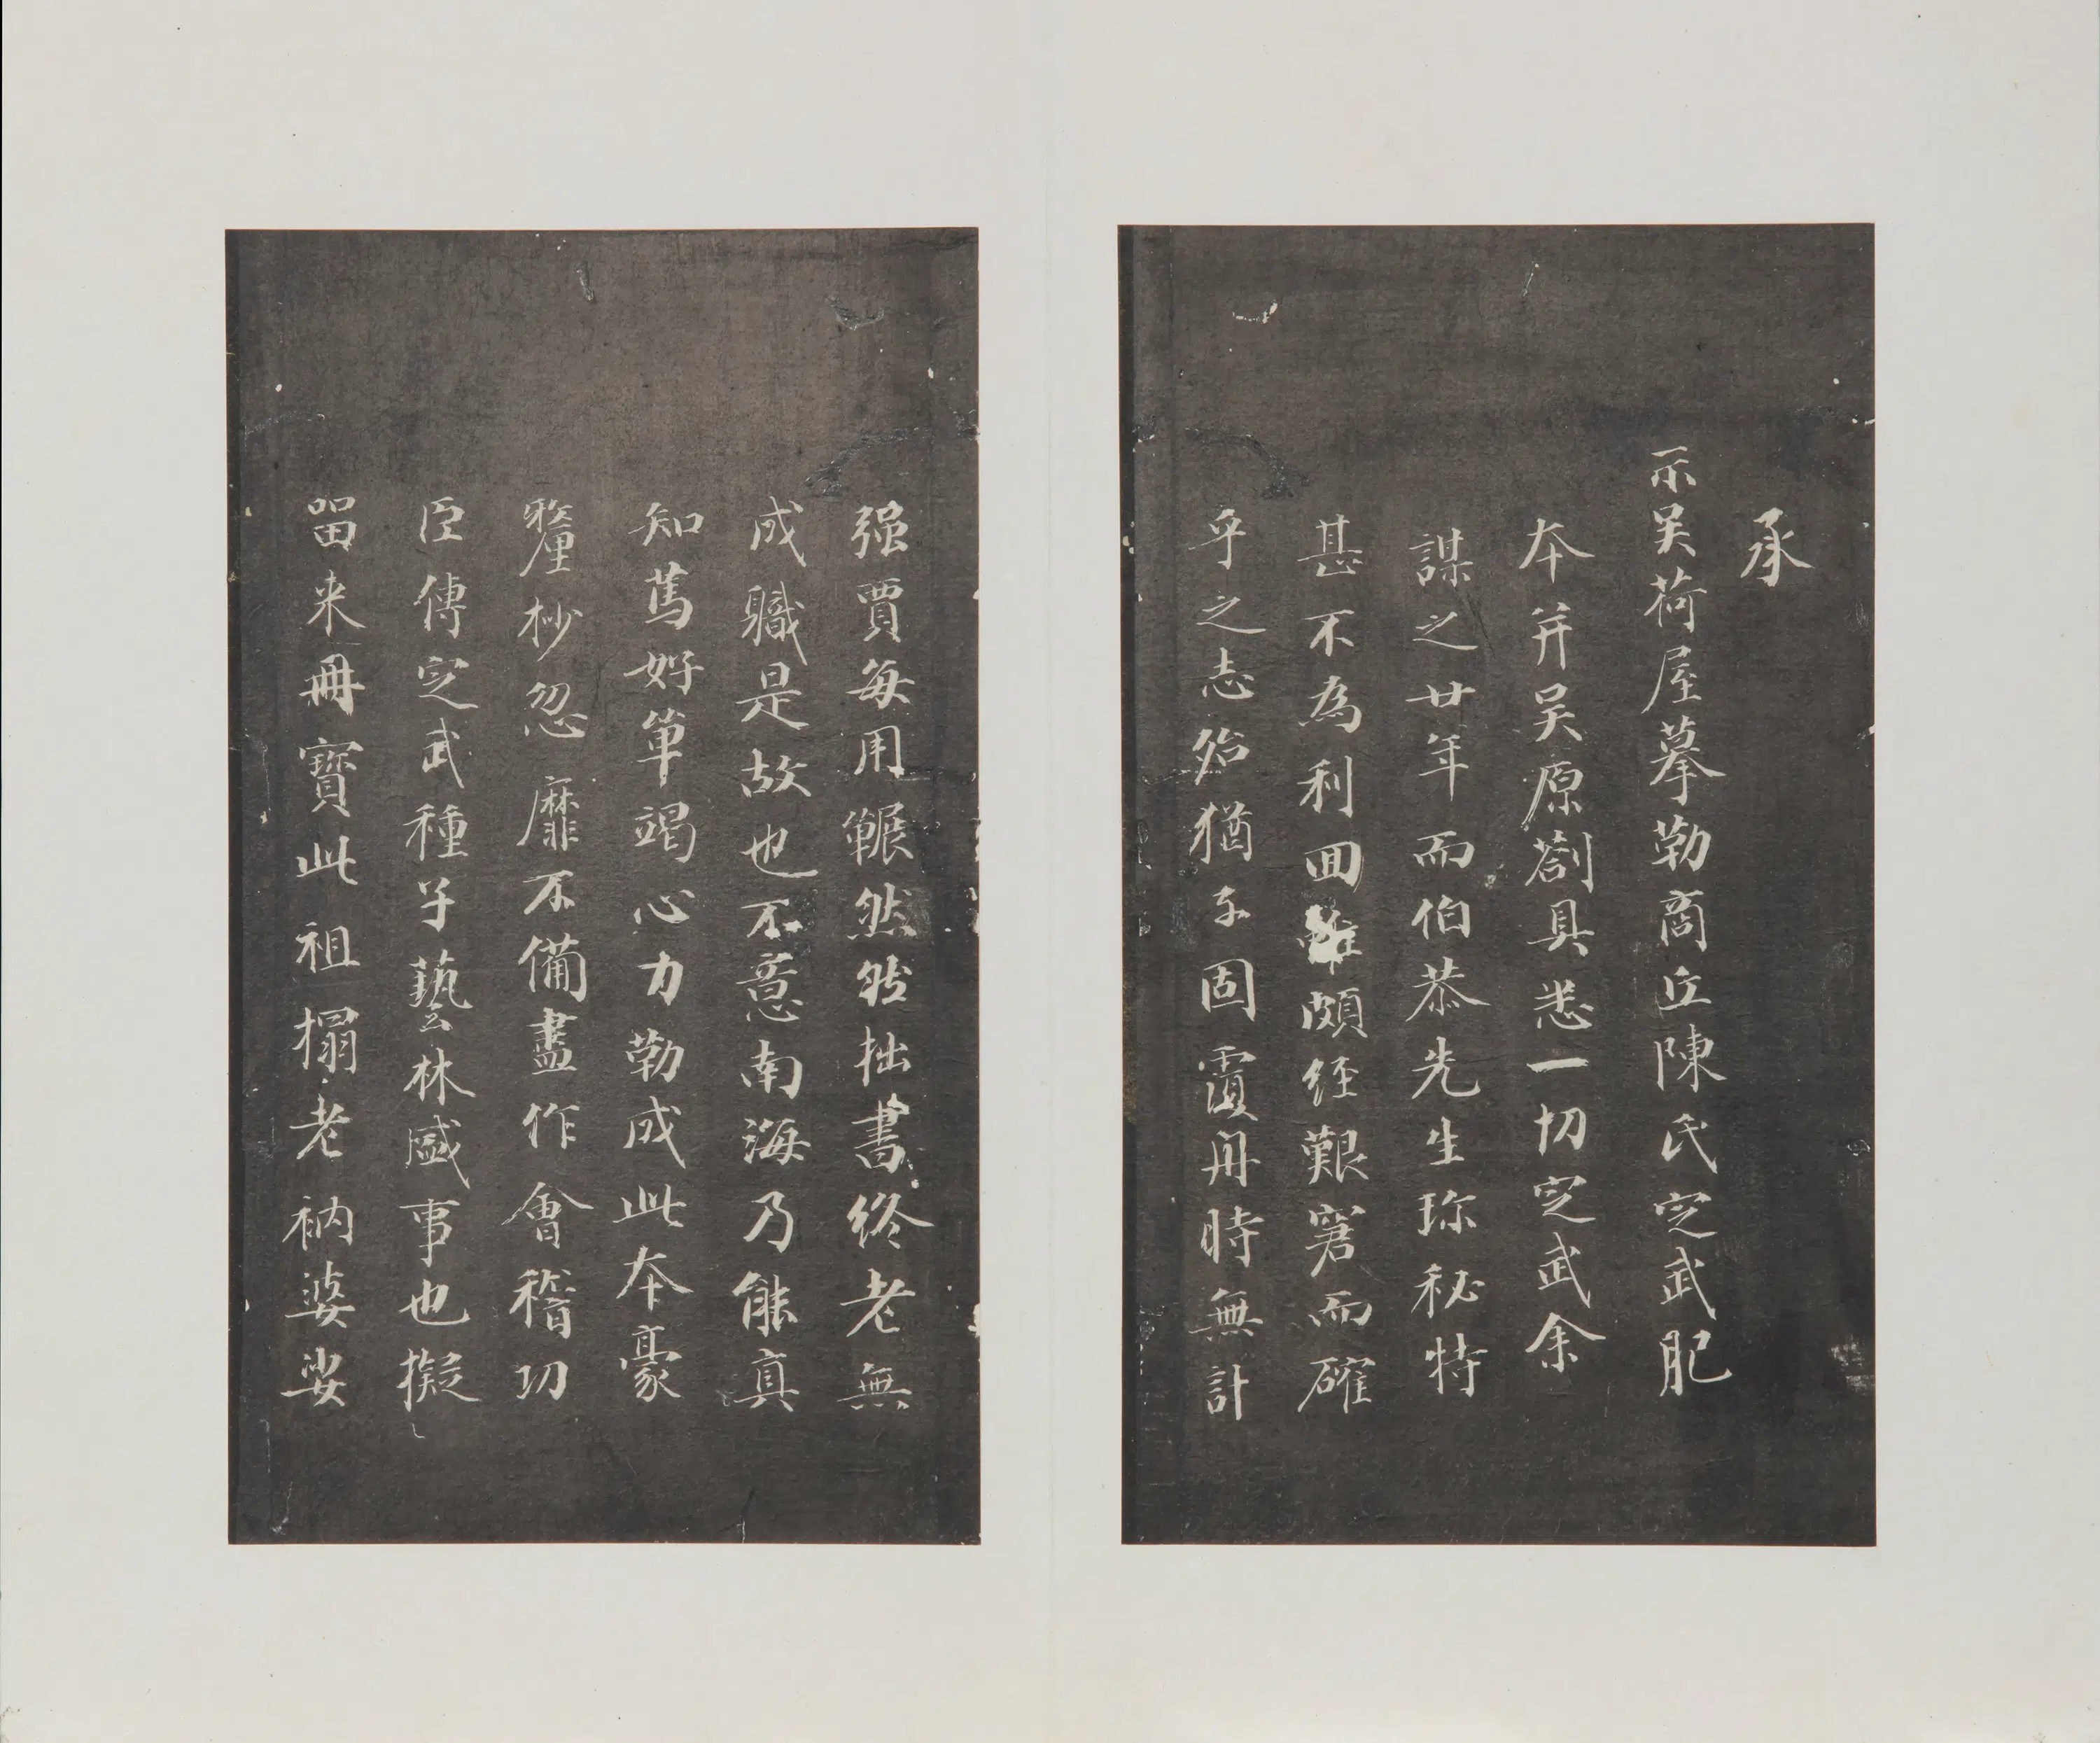 承
示吴荷屋摹勒商丘陳氏定武肥
本并吴原劄具悉一切定武余
謀之廿年而伯恭先生珎秘特
甚不為利回雖頗経艱窘而確
乎之志殆猶未固霣舟時無計
强賈每用冁然然拙書終老無
成職是故也不意南海乃能真
知篤好單竭心力勒成此本豪
釐杪忽靡不備盡作會稽功
臣傳定武種子藝林盛事也擬
留来冊寳此祖搨老衲婆娑